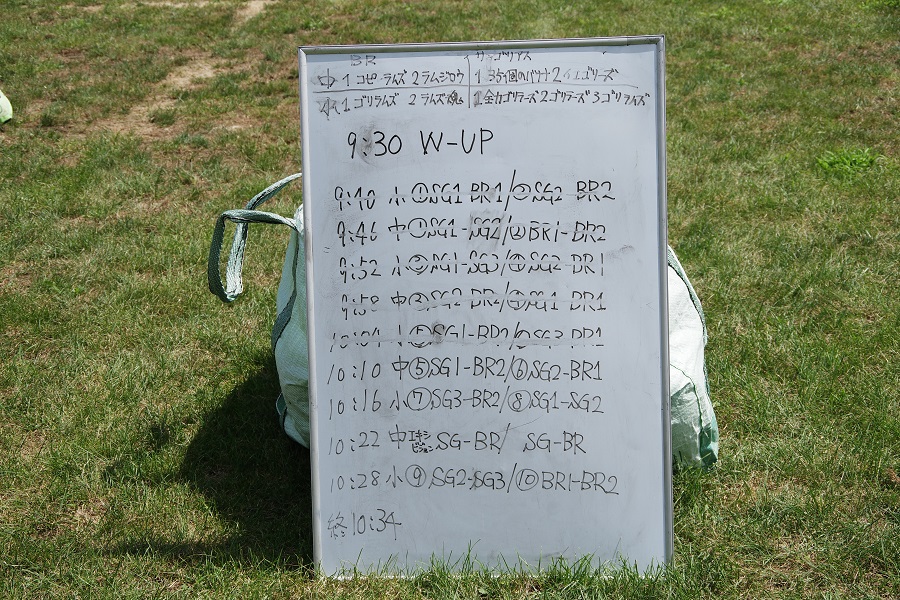 BR サンゴリアス
中 1 コピーライズ 2 ラムジロウ 1 35個のバナナ 2 イエゴリーズ
小 1 ゴリライズ 2 ラムズ魂 1 全力ゴリラーズ 2 ゴリラーズ 3 ゴリライズ
9:30 W-UP
9:40 小①SG1 BR1/②SG2-BR2
9:46 中①SG1-SG2/②BR1-BR2
9:52 小③SG1-SG3/④SG2-BR1
9:58 中③SG2-BR2/④SG1-BR1
10:04 小⑤SG1-BR2/⑥SG3-BR1
10:10 中⑤SG1-BR2/⑥SG2-BR1
10:16 小⑦SG3-BR2/⑧SG1-SG2
10:22 中エキシビション SG-BR/ SG-BR
10:28 小⑨SG2-SG3/⑩BR1-BR2
終 10:34